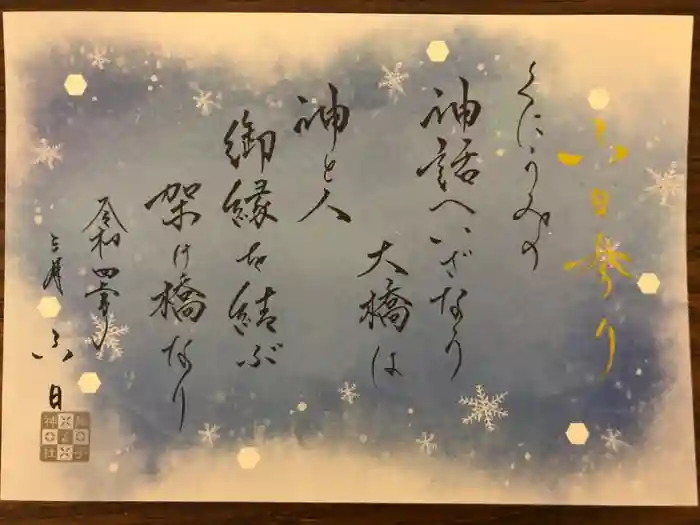 六日参り
くにうみの
神話へいざなり
大橋は
神と人
御縁を結ぶ
架け橋なり
令和四年
三月
六日